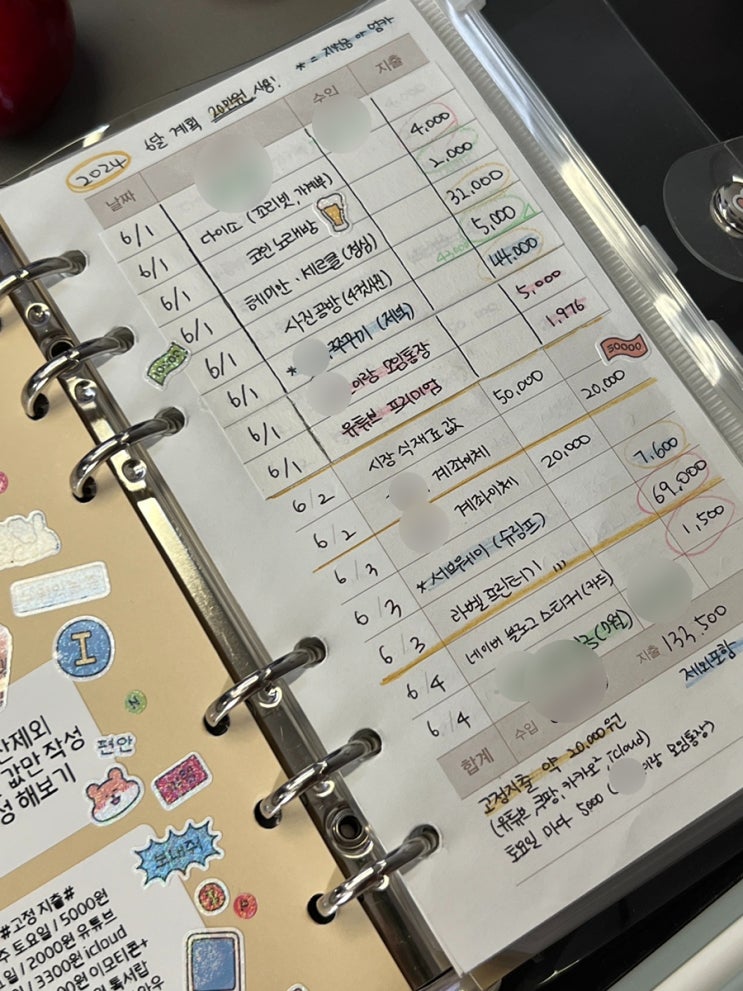 * = 지원금 or 엄카
2024 6月 계획 20만원 사용!
날짜 수입 지출
6/1 다이소 (프리빗, 가계부) 4,000
6/1 코인 노래방 2,000
6/1 헤미안·세르클 (점심) 32,000
6/1 사진공방 (4컷사진) 5,000
6/1 * 쭈꾸미 (저녁) 44,000
6/1 이랑 모임통장 5,000
6/1 유튜브 프리미엄 1,976
50000
6/2 시장 식재료값 50,000 20,000
6/2 계좌이체
6/3 계좌이체 20,000
6/3 * 서브웨이 (슈림프) 7,600
6/3 라벨프린터기 69,000
6/4 네이버 블로그 스티커 (카드) 1,500
6/4 (7월)
합계 수입 지출 133,500
제외포함
고정지출 약 20,000원
(유튜브, 쿠팡, 카카오², icloud)
토요일 마다 5000 (이랑 모임통장)
I
제외
값만 작성
해보기
편안
#고정 지출#
토요일 / 5000원
/ 2000원 유튜브
/ 3300원 icloud
이모티콘+
톡서랍